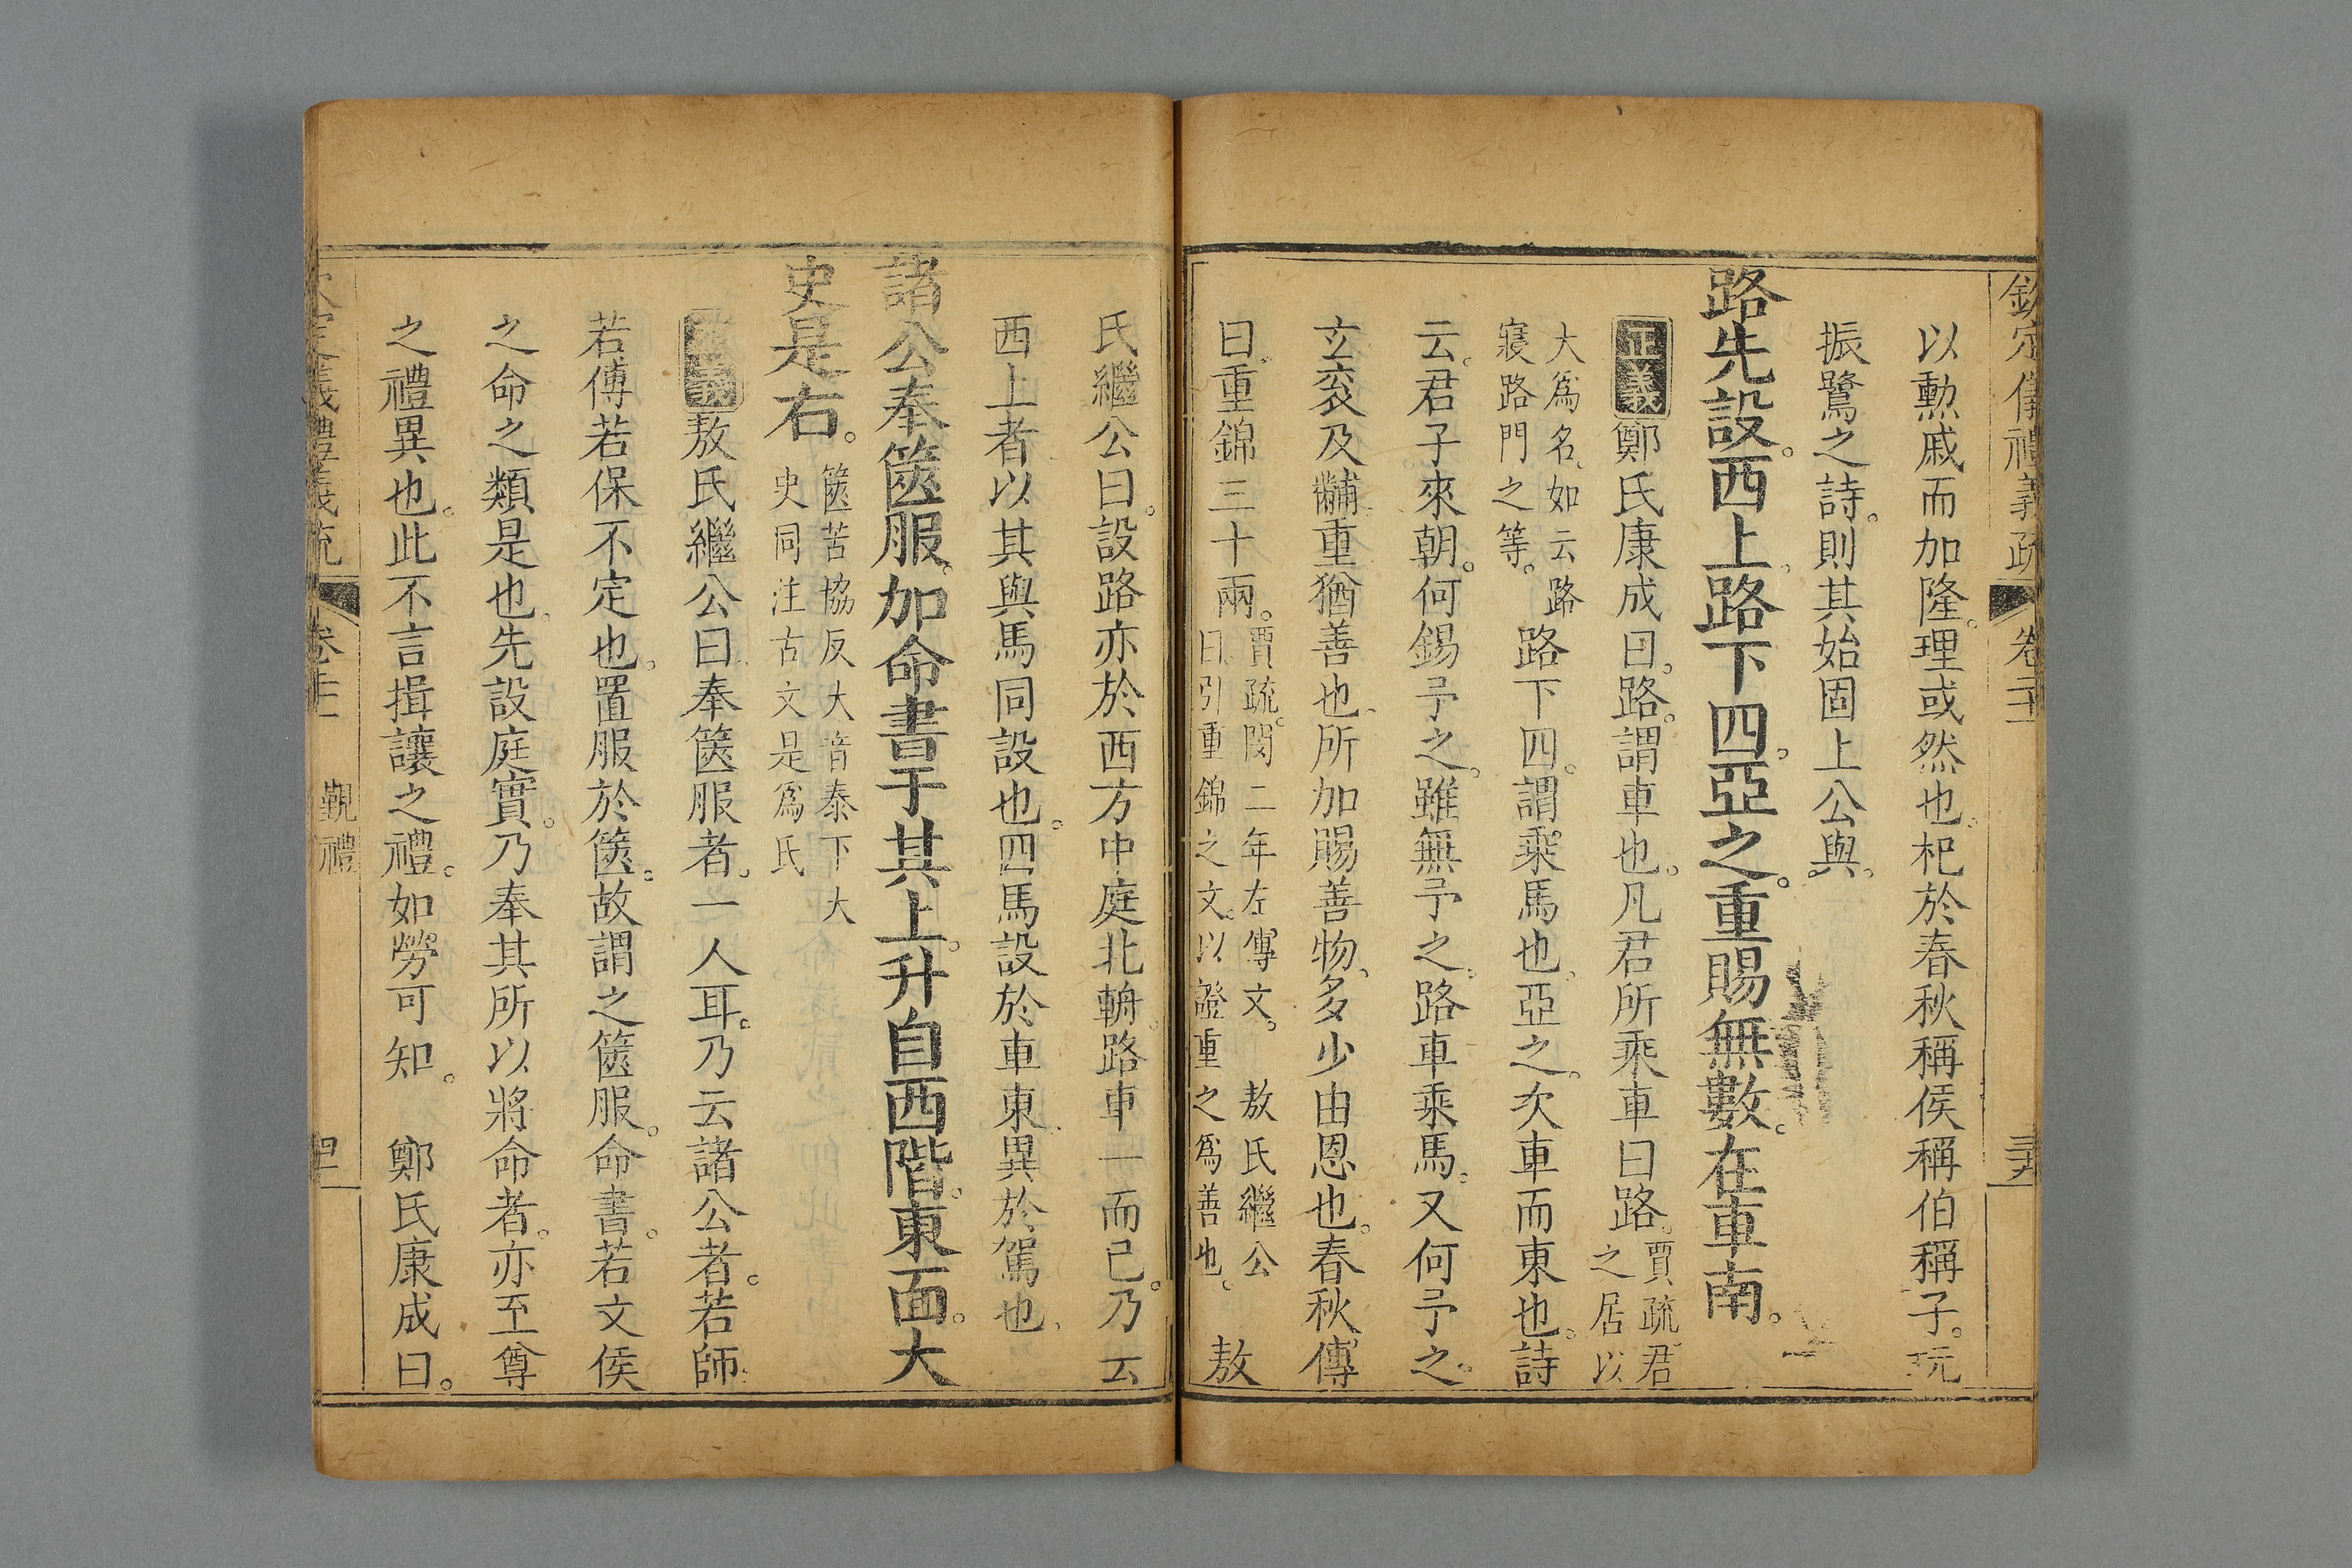 欽定儀禮義疏 卷二十一
以勲戚而加隆。理或然也。杞於春秋稱侯稱伯稱子。玩
振鷺之詩。則其始固上公與。
路先設。西上。路下四。亞之。重賜無數。在車南。
正義鄭氏康成曰。路。謂車也。凡君所乘車曰路。賈疏。君之居以
大爲名。如云路寢路門之等。路下四。謂乘馬也。亞之。次車而東也。詩
云。君子來朝。何錫予之。雖無予之。路車乘馬。又何予之。
玄衮及黼。重猶善也。所加賜善物。多少由恩也。春秋傳
曰。重錦三十兩。賈疏。閔二年左傳文。敖氏繼公曰。引重錦之文。以證重之爲善也。敖
氏繼公曰。設路亦於西方中庭北輈。路車一而已。乃云
西上者以其與馬同設也。四馬設於車東。異於駕也。
諸公奉篋服。加命書于其上。升自西階。東面。大
史是右。篋苦協反大音泰下大史同注古文是爲氏
義敖氏繼公曰。奉篋服者。一人耳。乃云諸公者。若師
若傅若保不定也。置服於篋。故謂之篋服。命書。若文侯
之命之類是也。先設庭實。乃奉其所以將命者。亦至尊
之禮異也。此不言揖讓之禮。如勞可知。 鄭氏康成曰。
儀禮義疏 觀禮